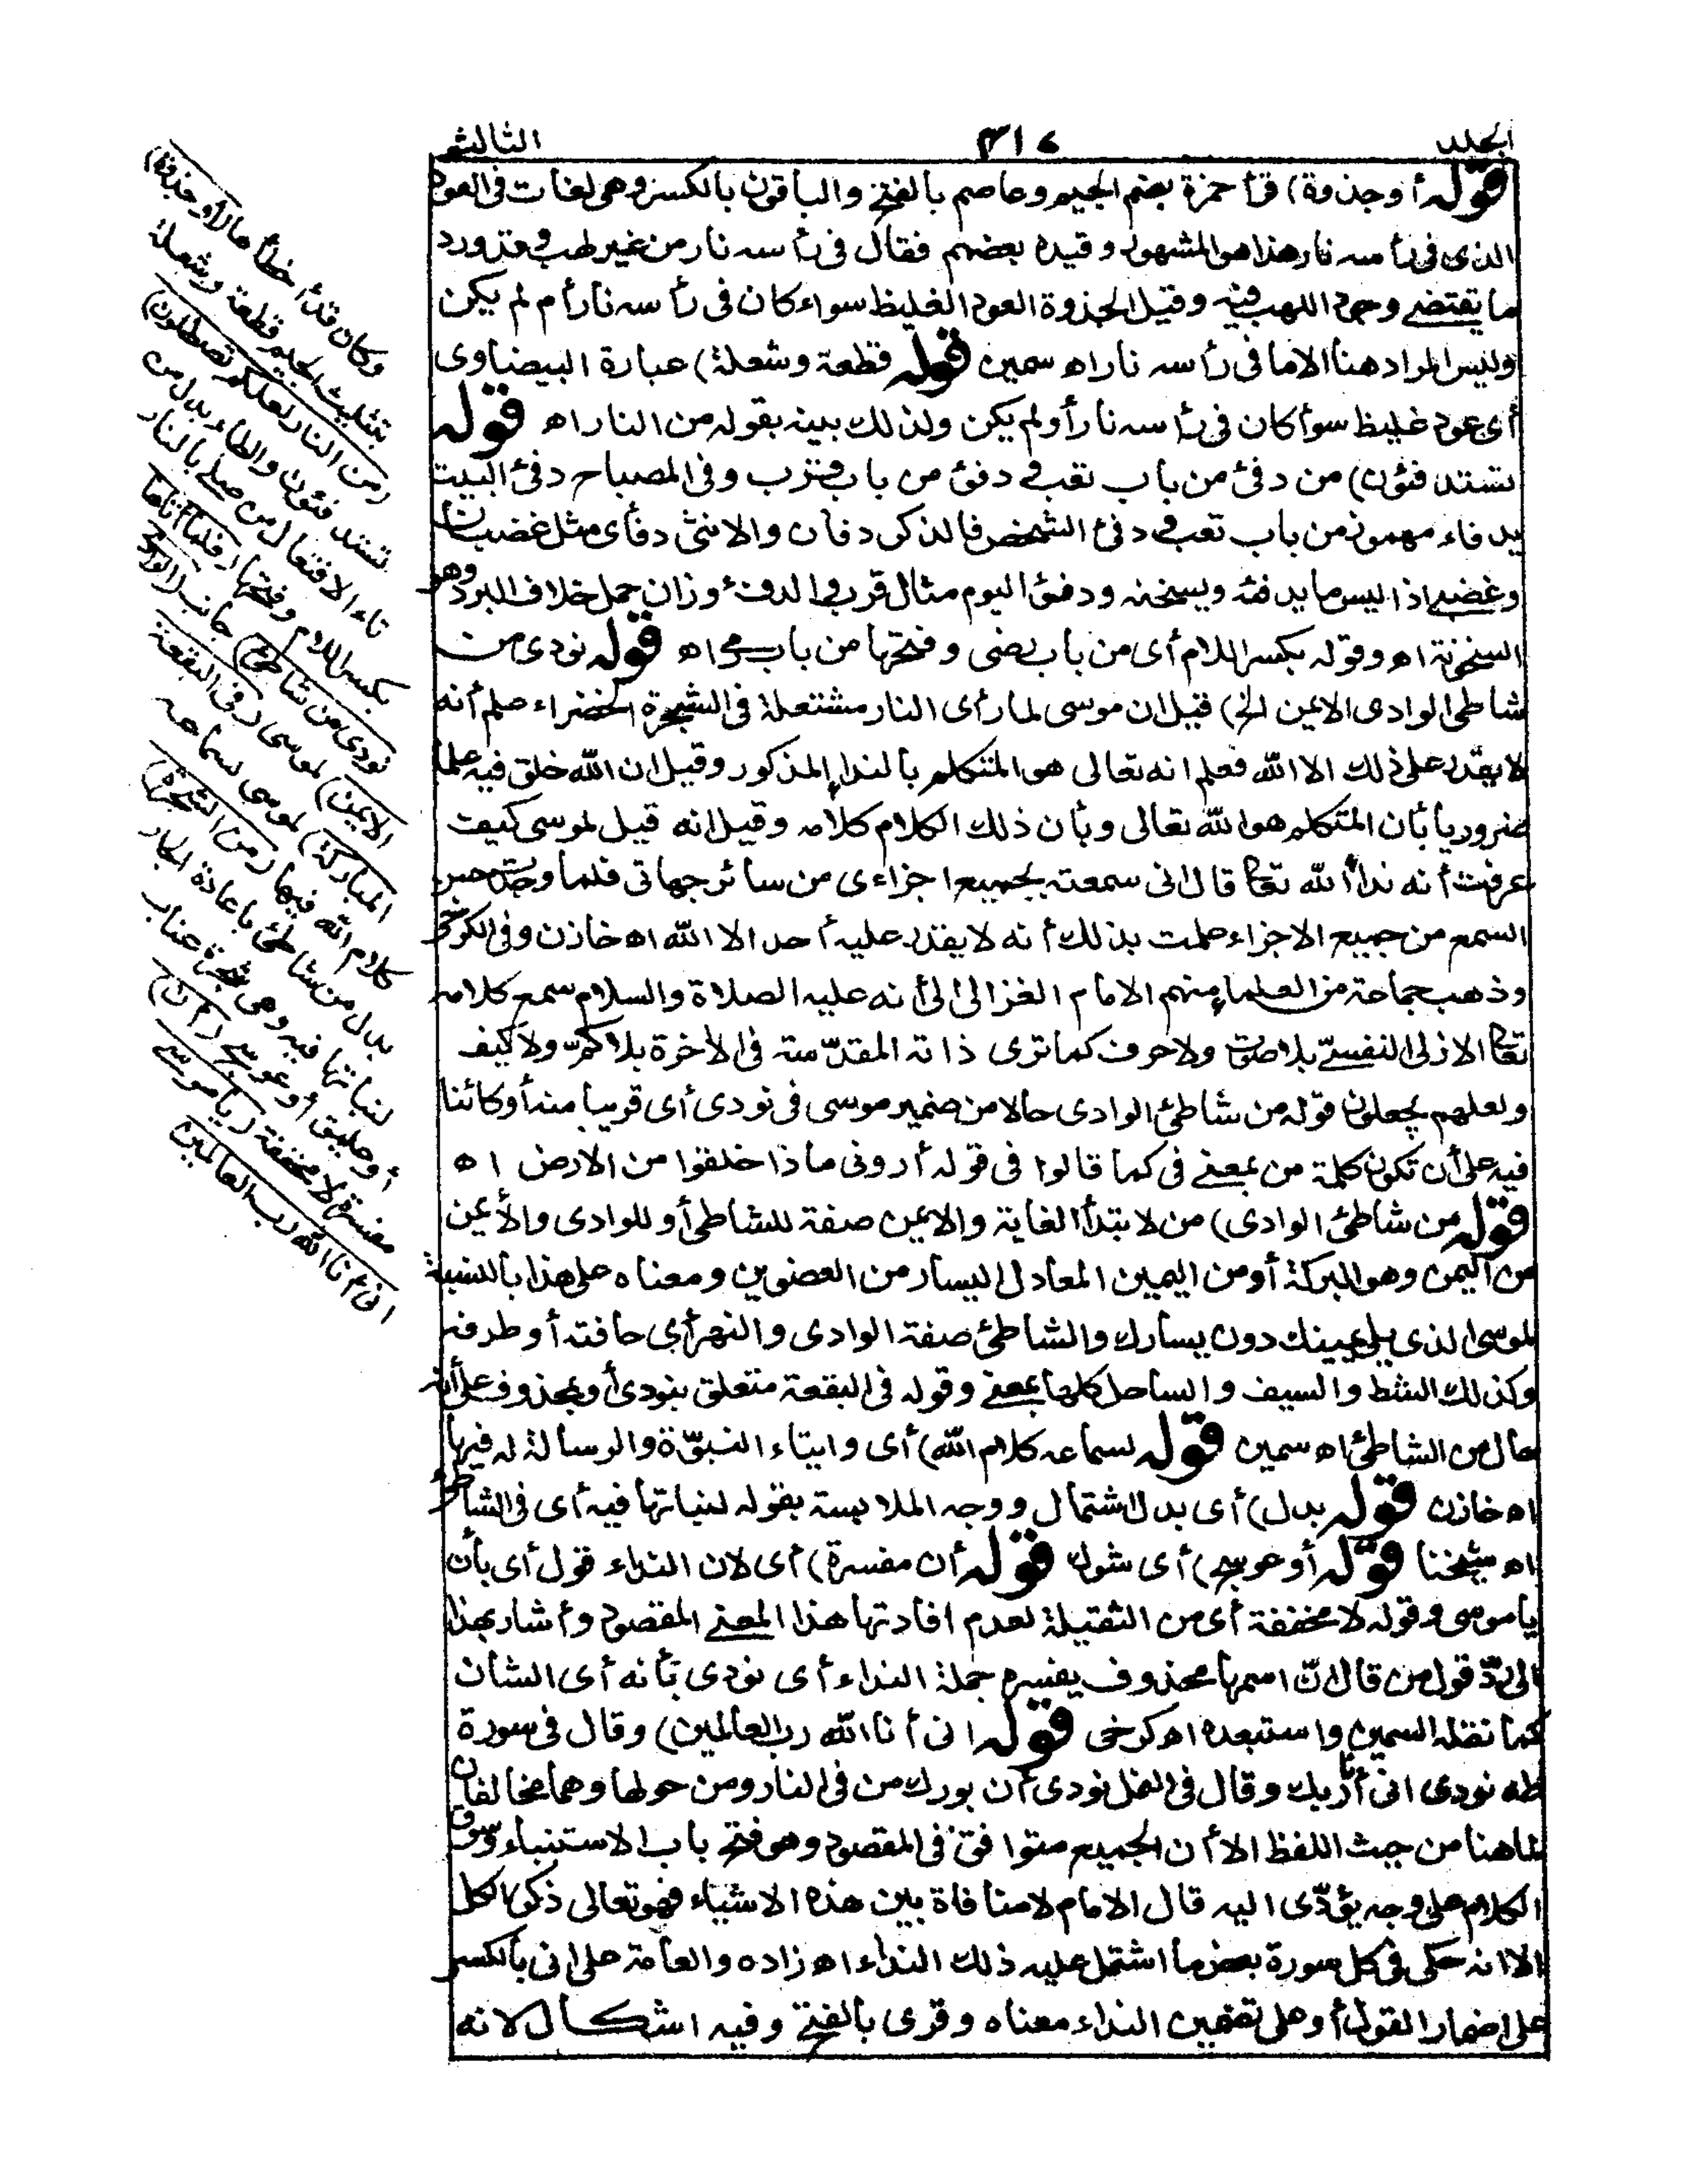 الجلد
٣١٧
الثالث
قوله أوجذوة) قرأ حمزة بضم الجيم وعاصم بالفتح والباقون بالكسر وهى لغات فى العود
الذى فى رأسه نار هذا هو المشهور وقيده بعضهم فقال فى رأسه نار من غير لهب وقد ورد
ما يقتضى وجود اللهب فيه وقيل الجذوة العود الغليظ سواء كان فى رأسه نار أم لم يكن
وليس المراد هنا الا ما فى رأسه نار اه سمين قوله قطعة وشعلة) عبارة البيضاوى
أى عود غليظ سوأ كان فى رأسه نار أولم يكن ولذلك بينه بقوله من النار اه قوله
تستدفئون) من دفئ من باب تعب و دفؤ من باب قرب وفى المصباح دفئ البيت
يدفاء مهموز من باب تعب و دفئ الشخص فالذكر دفان والانثى دفأى مثل غضبان
وغضبى اذا لبس ما يدفئه ويسخنه ودفؤ اليوم مثال قرب والدفئ وزان حمل خلاف البرد وهو
السخونة اه وقوله بكسر اللام أى من باب رضى وفتحها من باب رمى اه قوله نودى من
شاطئ الوادى الايمن الخ) قيل ان موسى لما رأى النار مشتعلة فى الشجرة الخضراء علم أنه
لا يقدر على ذلك الا الله فعلم انه تعالى هو المتكلم بالنداء المذكور وقيل ان الله خلق فيه علما
ضروريا بأن المتكلم هو الله تعالى وبأن ذلك الكلام كلامه وقيل انه قيل لموسى كيف
عرفت أنه نداأ الله تعالى قال انى سمعته بجميع اجزاءى من سائر جهاتى فلما وجدت حس
السمع من جميع الاجزاء علمت بذلك أنه لا يقدر عليه أحد الا الله اه خازن وفى الكرخى
وذهب جماعة من العلماء منهم الامام الغزالى الى أنه عليه الصلاة والسلام سمع كلامه
تعالى الازلى النفسىّ بلا صوت ولا حرف كما ترى ذاته المقدّسة فى الأخرة بلا كمّ ولا كيف
ولعلهم يجعلون قوله من شاطئ الوادى حالا من ضمير موسى فى نودى أى قريبا منه أو كائنا
فيه على أن تكون كلمة من بمعنى فى كما قالوا فى قوله أرونى ماذا خلقوا من الارض اه
قوله من شاطئ الوادى) من لابتدأ الغاية والايمن صفة للشاطئ أو للوادى والأيمن
من اليمن وهو البركة أو من اليمين المعادل اليسار من العضوين ومعناه على هذا بالنسبة
لموسى الذى يلى يمينك دون يسارك والشاطئ صفة الوادى والنهر أى حافته أو طرفه
وكذلك الشط والسيف والساحل كلها بمعنى وقوله فى البقعة متعلق بنودى أوبمحذوف على أنه
حال من الشاطئ اه سمين قوله لسماعه كلام الله) أى وايتاء النبوّة والرسالة له فيها
اه خازن قوله بدل) أى بدل اشتمال ووجه الملابسة بقوله لنباتها فيه أى فى الشاطئ
اه شيخنا قوله أو عوسج) أى شوك قوله أن مفسرة) أى لان النداء قول أى بأن
يا موسى وقوله لا مخففة أى من الثقيلة لعدم افادتها هذا المعنى المقصود وأشار بهذا
الى ردّ قول من قال انّ اسمها محذوف يفسره جملة النداء أى نودى بأنه أى الشان
كما نقله السمين واستبعده اه كرخى قوله انى أنا الله رب العالمين) وقال فى سورة
طه نودى انى أنا ربك وقال فى النمل نودى أن بورك من فى النار ومن حولها وهما مخالفان
لما هنا من حيث اللفظ الا أن الجميع متوافق فى المقصود وهو فتح باب الاستنباء وسوق
الكلام على وجه يؤدّى اليه قال الامام لا منافاة بين هذه الاشياء فهو تعالى ذكر الكل
الا انه حكى فى كل سورة بعض ما اشتمل عليه ذلك النداء اه زاده والعامة على انى بالكسر
على اضمار القول أو على تضمين النداء معناه وقرى بالفتح وفيه اشكال لانه
وكان قد أخطأها (أوجذوة)
بتثليث الجيم قطعة وشعلة
(من النار لعلكم تصطلون)
تستدفئون والطاء بدل من
تاء الافتعال من صلى بالنار
بكسر اللام وفتحها (فلما أتاها
نودى من شاطئ) جانب (الوادى
الايمن) لموسى (فى البقعة
المباركة) لموسى لسماعه
كلام الله فيها (من الشجرة)
بدل من شاطئ باعادة الجار
لنباتها فيه وهى شجرة عناب
أو عليق أو عوسج (أن)
مفسرة لا مخففة (يا موسى
انى أنا الله رب العالمين